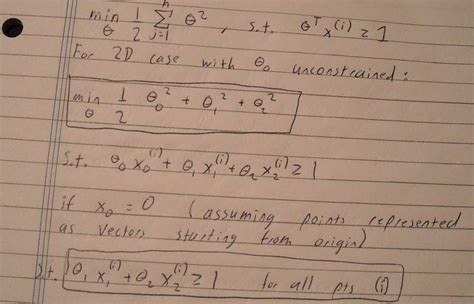 min 1/2 n∑j=1 θ², s.t. θᵀx⁽ⁱ⁾ ≥ 1
θ
For 2D case with θ₀ unconstrained:
min 1/2 θ₀² + θ₁² + θ₂²
θ
s.t. θ₀x₀⁽ⁱ⁾ + θ₁x₁⁽ⁱ⁾ + θ₂x₂⁽ⁱ⁾ ≥ 1
if x₀ = 0 (assuming points represented
as vectors starting from origin)
s.t. θ₁x₁⁽ⁱ⁾ + θ₂x₂⁽ⁱ⁾ ≥ 1 for all pts (i)